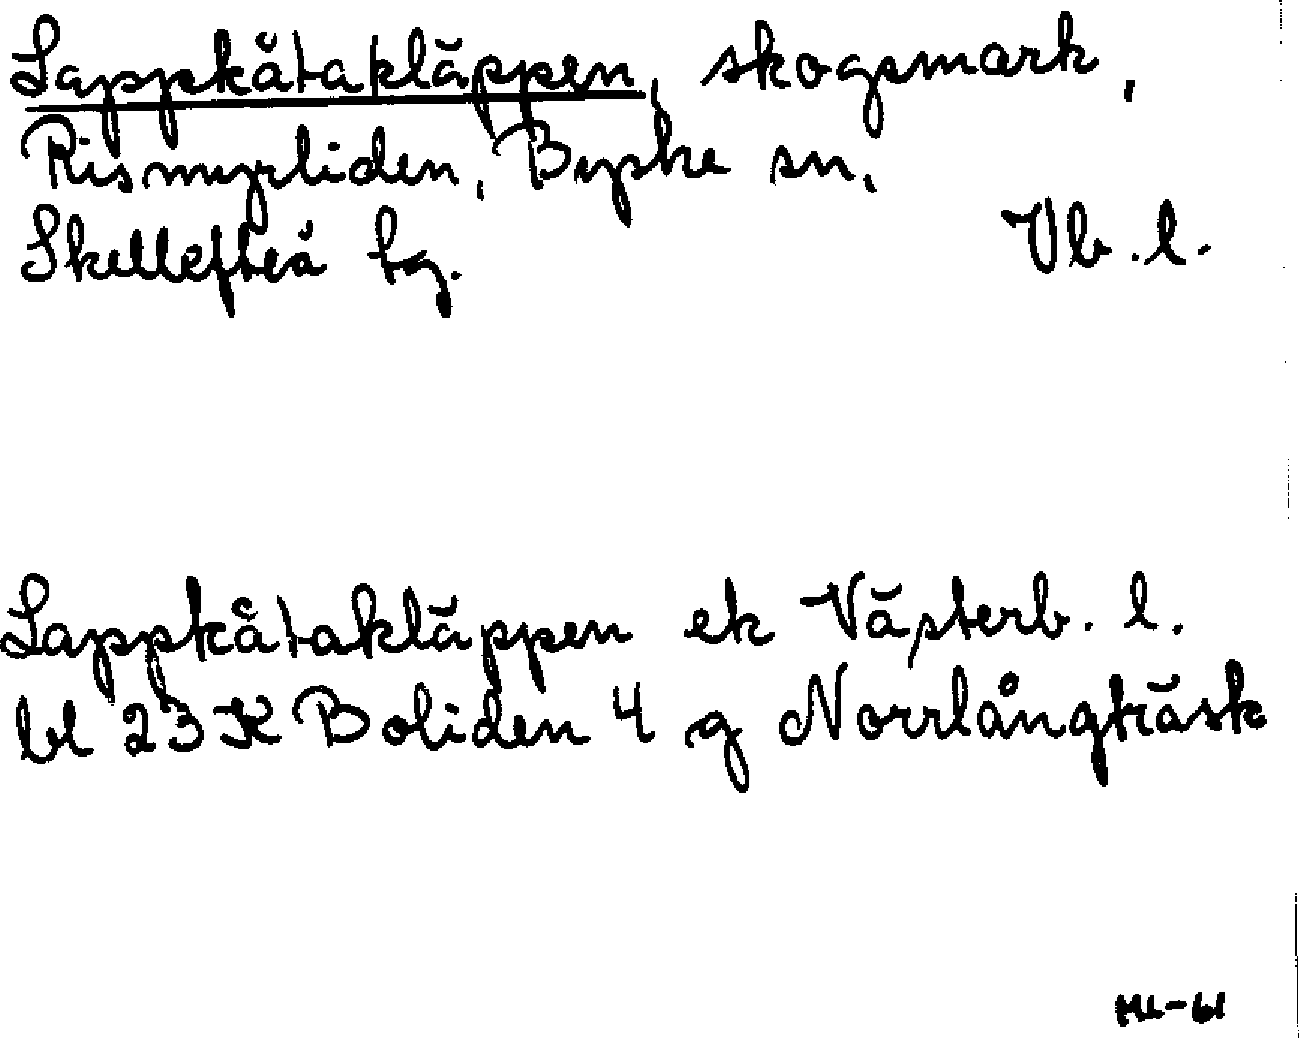 Lappkåtakläppen, skogsmark,
Rismyrliden, Byske sn.
Skellefteå tg. Vb. l.
Lappkåtakläppen ek Västerb. l.
bl 23 K Boliden 4 g Norrlångträsk
ML-61